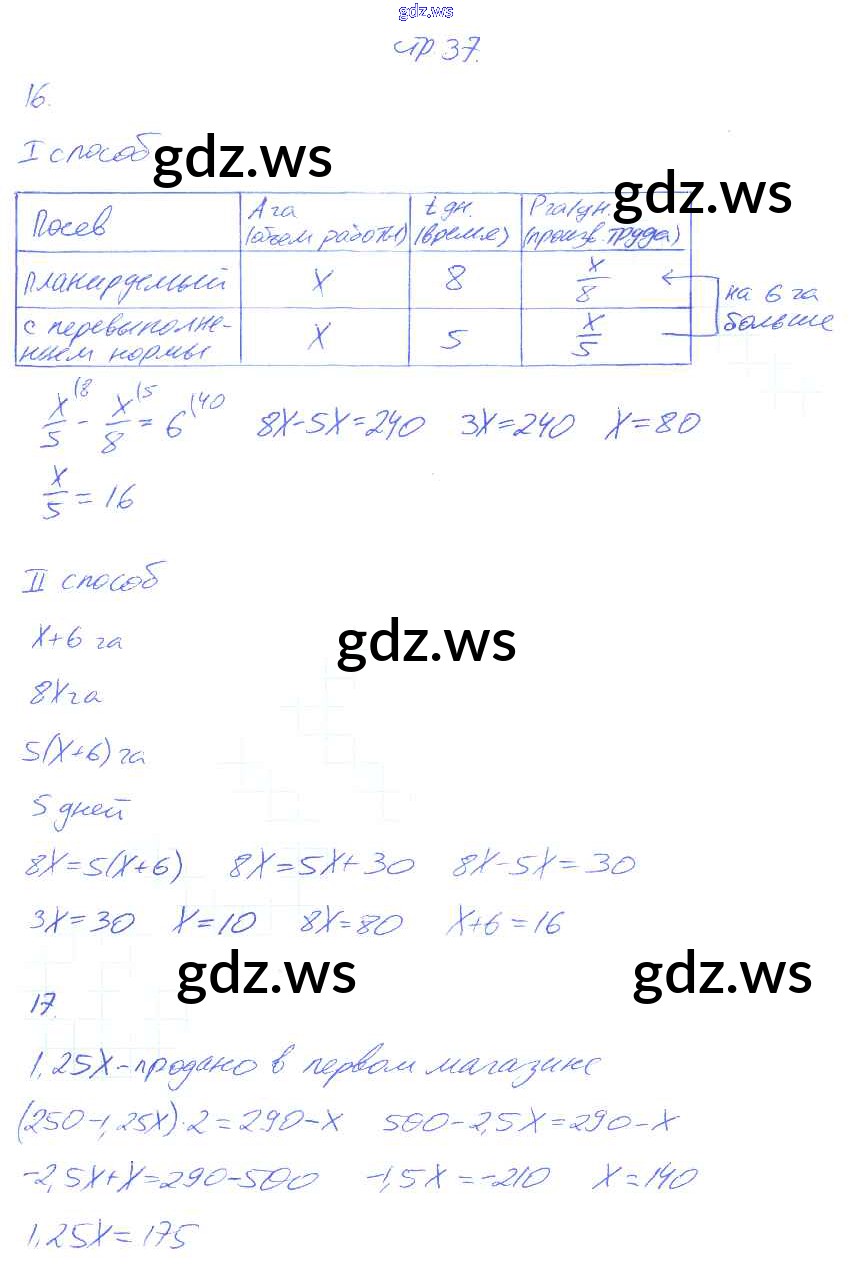 gdz.ws
стр 37.
16.
I способ
gdz.ws
gdz.ws
Посев
А га (объем работы)
t дн. (время)
P га/дн. (произв. труда)
планируемый
x
8
x/8
с перевыполне-
нием нормы
x
5
x/5
на 6 га
больше
x/5 (8 - x/8 (5 = 6 (40   8x-5x=240   3x=240   x=80
x/5 = 16
II способ
x+6 га
gdz.ws
8x га
5(x+6) га
5 дней
8x=5(x+6)   8x=5x+30   8x-5x=30
3x=30   x=10   8x=80   x+6=16
gdz.ws
gdz.ws
17.
1,25x-продано в первом магазине
(250-1,25x)·2=290-x   500-2,5x=290-x
-2,5x+x=290-500   -1,5x=-210   x=140
1,25x=175